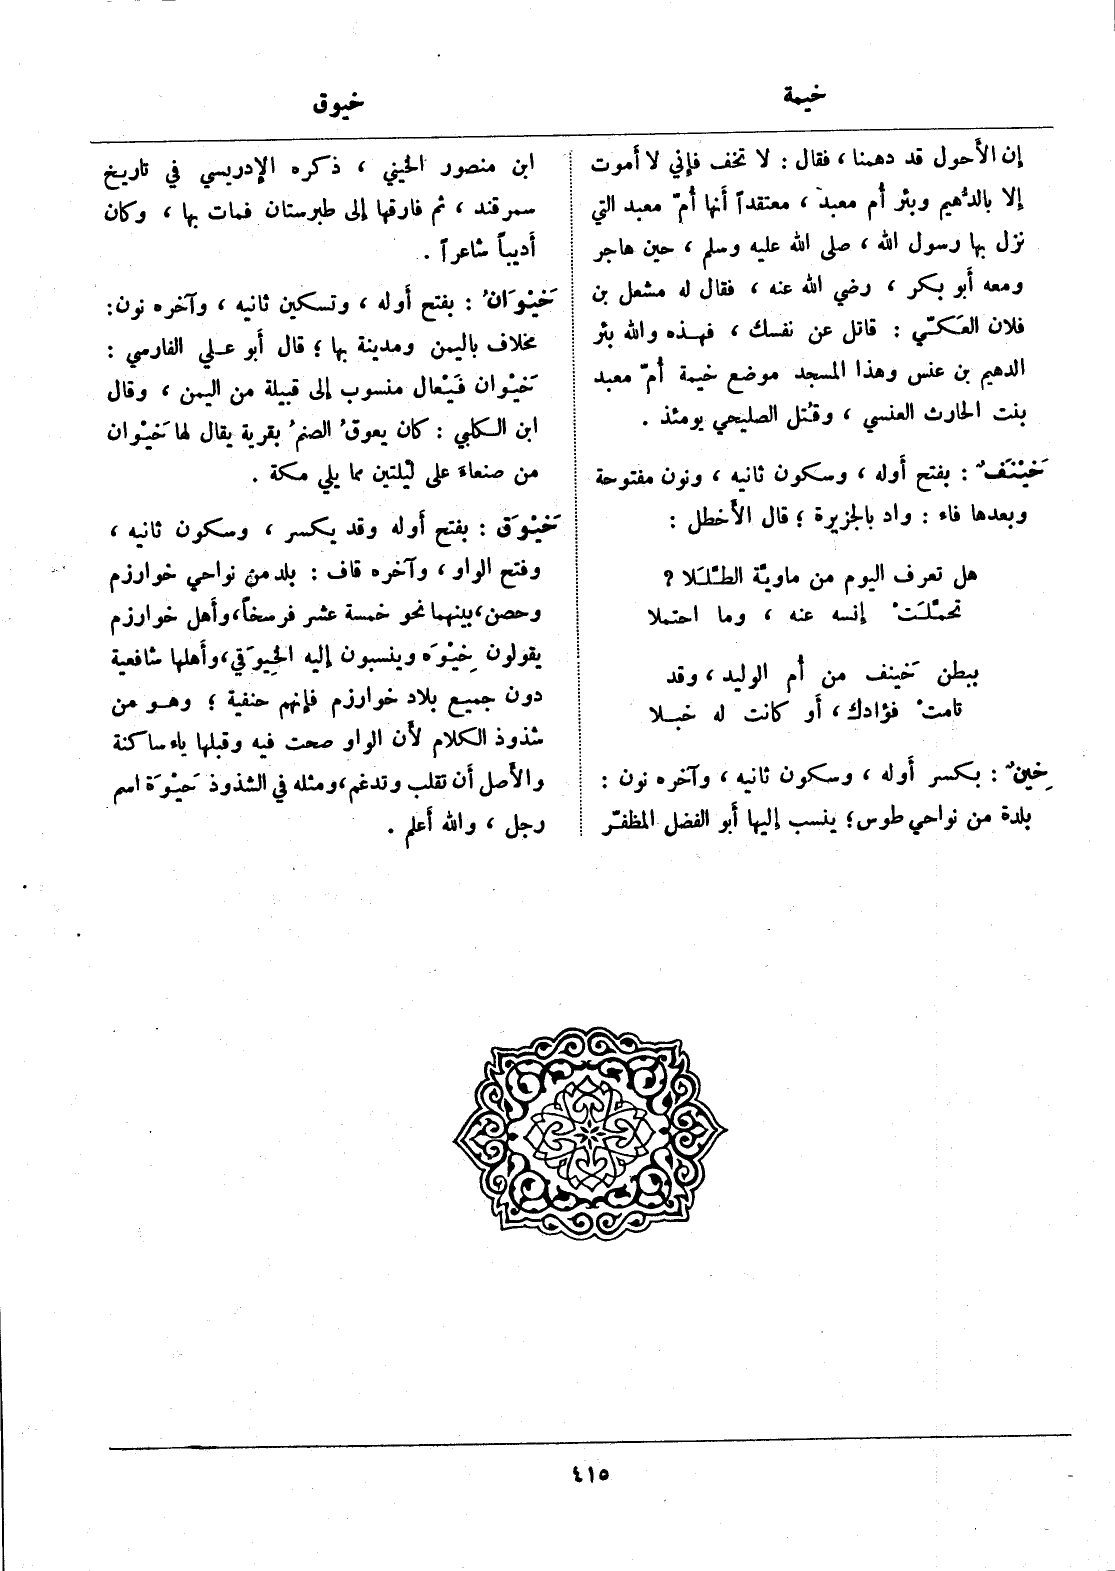 خيمة
خيوق
إن الأحول قد دهمنا ، فقال : لا تخف فإني لا أموت
إلا بالدُّهيم وبئر أم معبد ، معتقداً أنها أمّ معبد التي
نزل بها رسول الله ، صلى الله عليه وسلم ، حين هاجر
ومعه أبو بكر ، رضي الله عنه ، فقال له مشعل بن
فلان العَكّي : قاتل عن نفسك ، فهذه والله بئر
الدهيم بن عنس وهذا المسجد موضع خيمة أمّ معبد
بنت الحارث العنسي ، وقُتل الصليحي يومئذ .
خَيْنَفٌ : بفتح أوله ، وسكون ثانيه ، ونون مفتوحة
وبعدها فاء : واد بالجزيرة ؛ قال الأخطل :
هل تعرف اليوم من ماويّة الطّلَلا ؟
تحمّلَتْ إنسه عنه ، وما احتملا
ببطن خَينف من أم الوليد ، وقد
تامتْ فؤادك ، أو كانت له خبلا
خِينٌ : بكسر أوله ، وسكون ثانيه ، وآخره نون :
بلدة من نواحي طوس ؛ ينسب إليها أبو الفضل المظفّر
ابن منصور الخيني ، ذكره الإدريسي في تاريخ
سمرقند ، ثم فارقها إلى طبرستان فمات بها ، وكان
أديباً شاعراً .
خَيْوَانُ : بفتح أوله ، وتسكين ثانيه ، وآخره نون :
مخلاف باليمن ومدينة بها ؛ قال أبو علي الفارسي :
خَيْوان فَيْعال منسوب إلى قبيلة من اليمن ، وقال
ابن الكلبي : كان يعوقُ الصنمُ بقرية يقال لها خَيْوان
من صنعاء على ليْلتين مما يلي مكة .
خَيْوَق : بفتح أوله وقد يكسر ، وسكون ثانيه ،
وفتح الواو ، وآخره قاف : بلد من نواحي خوارزم
وحصن ، بينهما نحو خمسة عشر فرسخاً ، وأهل خوارزم
يقولون خِيْوَه وينسبون إليه الخِيوَقي ، وأهلها شافعية
دون جميع بلاد خوارزم فإنهم حنفية ؛ وهو من
شذوذ الكلام لأن الواو صحت فيه وقبلها ياء ساكنة
والأصل أن تقلب وتدغم ، ومثله في الشذوذ حَيْوَة اسم
رجل ، والله أعلم .
٤١٥